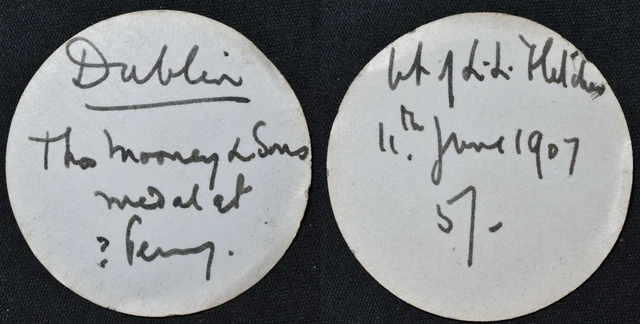 Dublin
Thos Mooney & Sons
medal at
? Penny.
bt. of L. L. Fletcher
11th June 1907
5/-